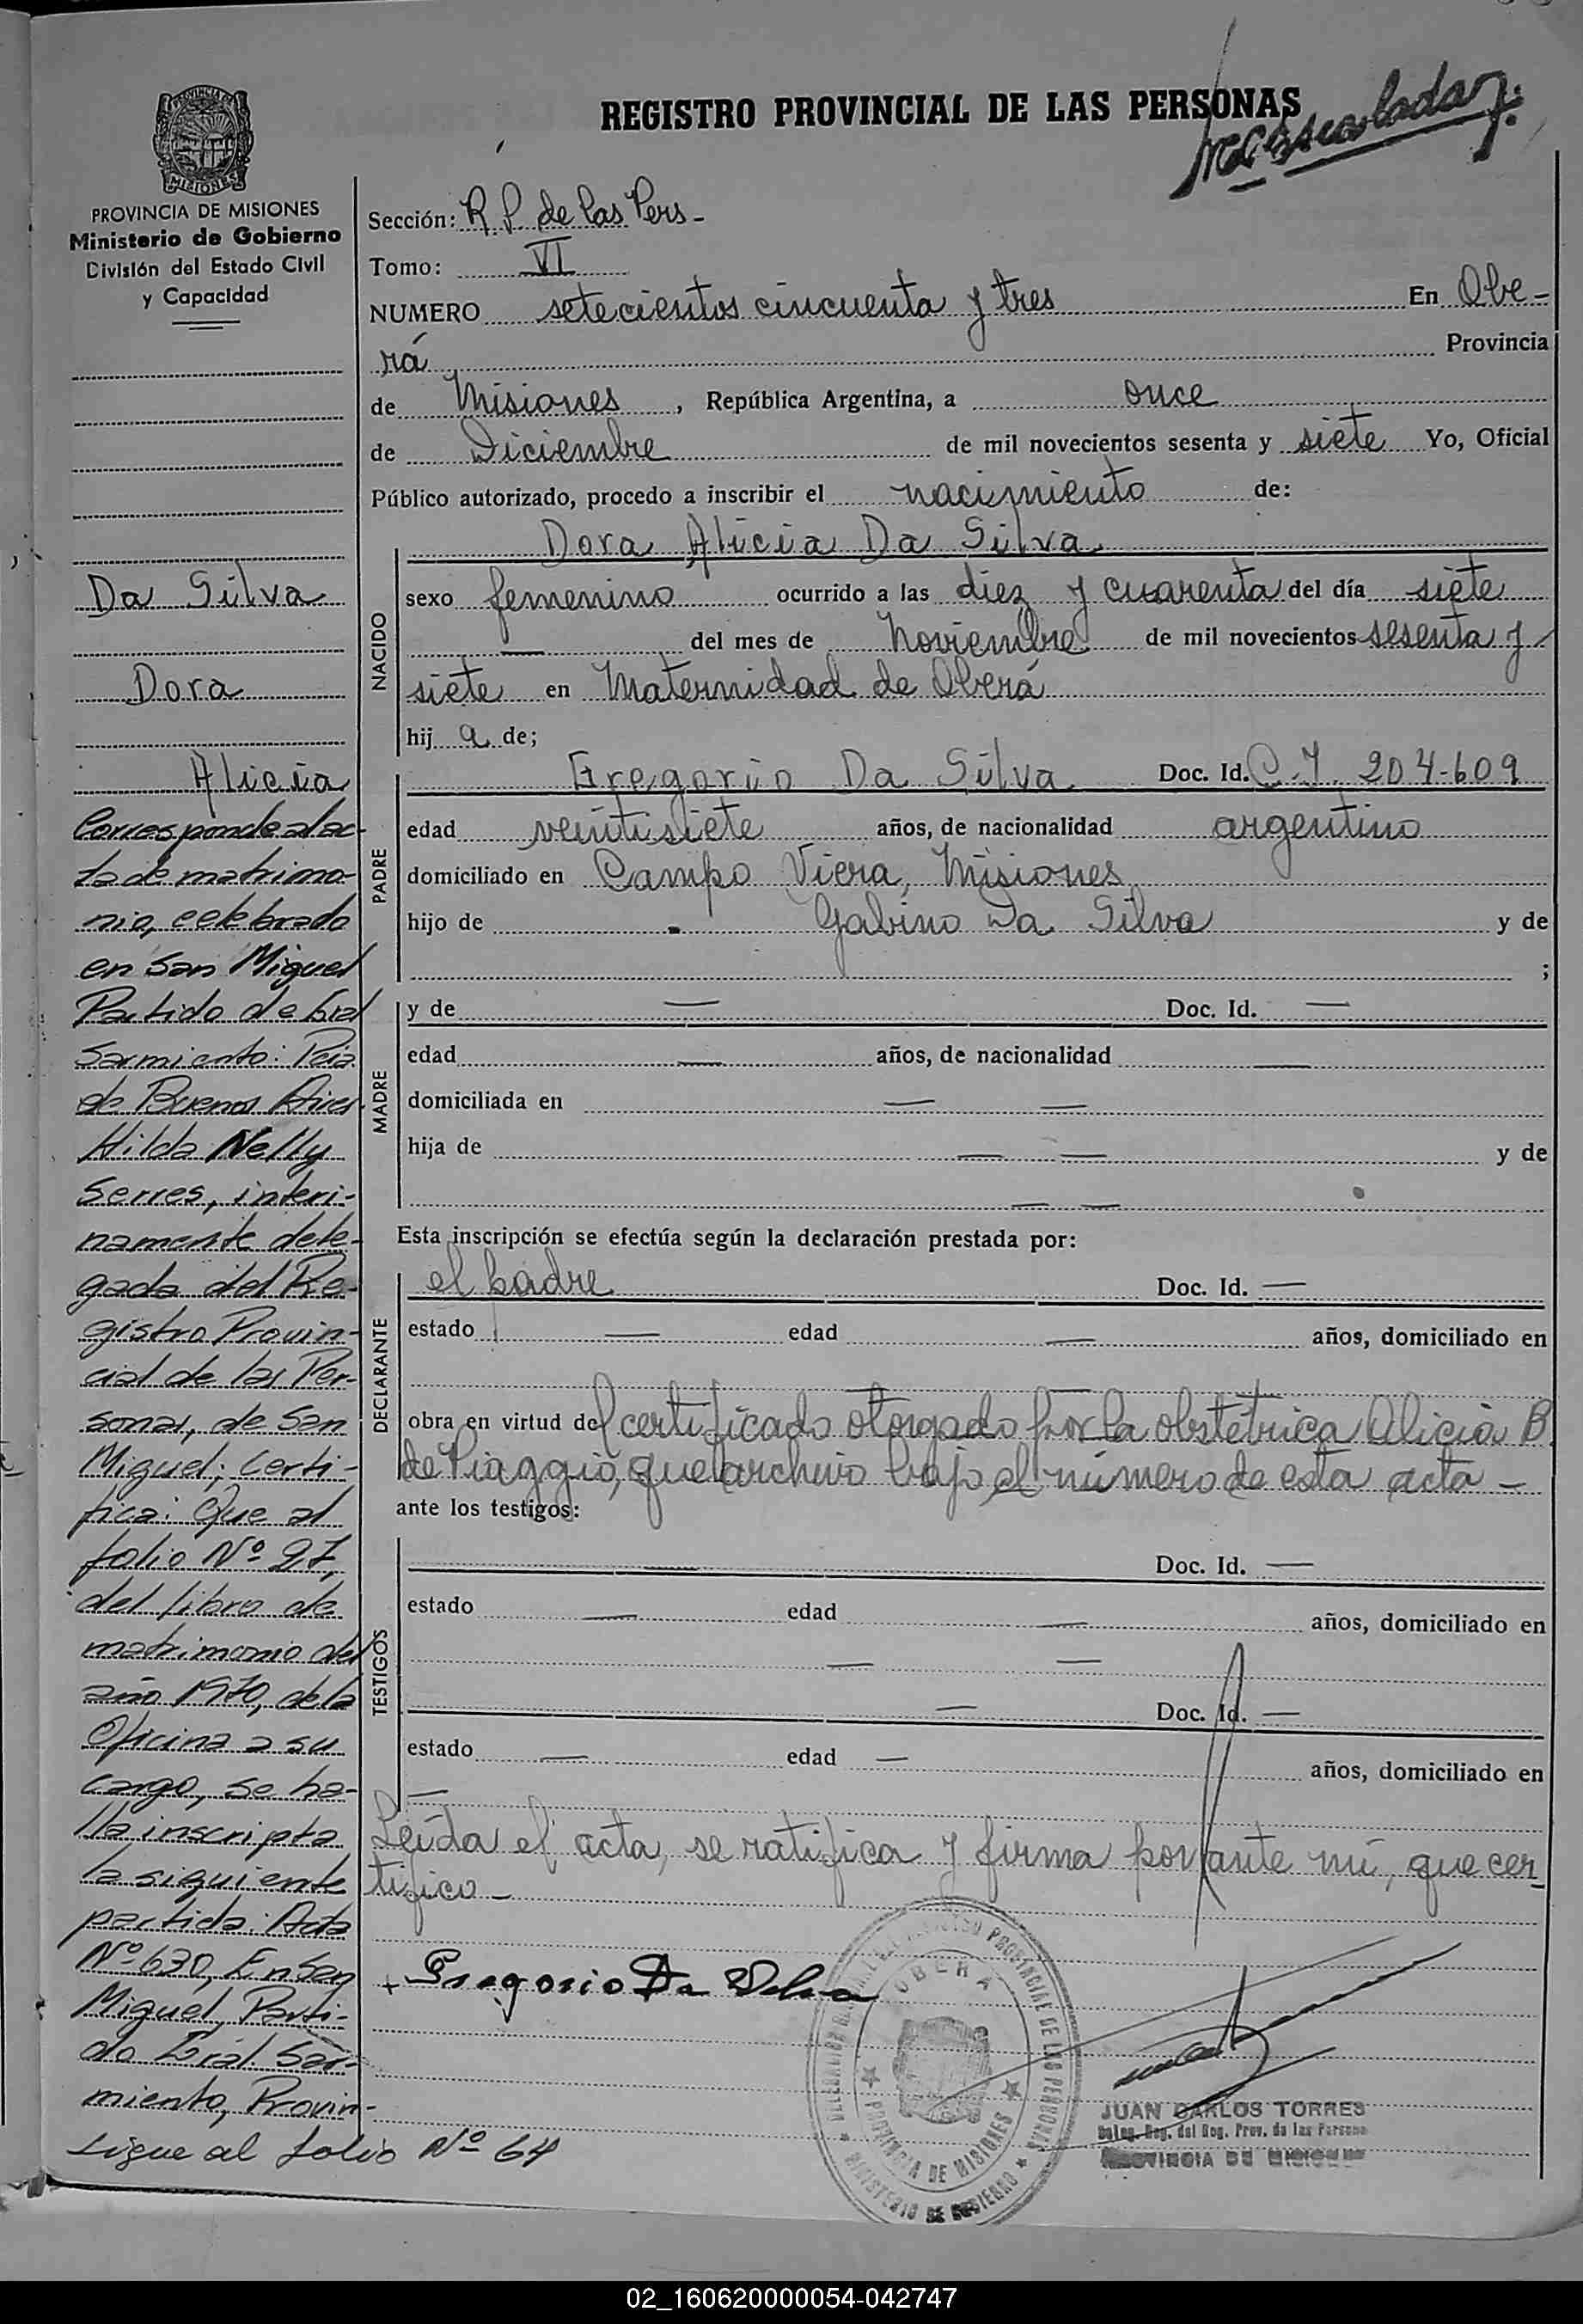 REGISTRO PROVINCIAL DE LAS PERSONAS
PROVINCIA DE MISIONES
Ministerio de Gobierno
División del Estado Civil
y Capacidad
Da Silva
Dora
Alicia
Corresponde al ac-
ta de matrimo-
nio, celebrado
en San Miguel
Partido de Gral
Sarmiento: Pcia.
de Buenos Aires
Hilda Nelly
Serres, interi-
namente dele-
gada del Re-
gistro Provin-
cial de las Per-
sonas, de San
Miguel; Certi-
fica: Que al
folio Nº 27,
del libro de
matrimonio del
año 1970, de la
Oficina a su
cargo, se ha-
lla inscripta
la siguiente
partida: Acta
Nº 630, En San
Miguel, Parti-
do Gral. Sar-
miento, Provin-
Sigue al folio Nº 64
Sección: R. P. de las Pers-
Tomo: VI
NUMERO setecientos cincuenta y tres En Obe-
rá Provincia
de Misiones, República Argentina, a once
de Diciembre de mil novecientos sesenta y siete Yo, Oficial
Público autorizado, procedo a inscribir el nacimiento de:
NACIDO
Dora Alicia Da Silva
sexo femenino ocurrido a las diez y cuarenta del día siete
— del mes de Noviembre de mil novecientos sesenta y
siete en Maternidad de Oberá
hij a de;
PADRE
Gregorio Da Silva Doc. Id. C.I. 204-609
edad veintisiete años, de nacionalidad argentino
domiciliado en Campo Viera, Misiones
hijo de Gabino Da Silva y de
;
MADRE
y de — Doc. Id. —
edad — años, de nacionalidad —
domiciliada en — —
hija de — — y de
— —
Esta inscripción se efectúa según la declaración prestada por:
DECLARANTE
el padre Doc. Id. —
estado — edad — años, domiciliado en
— —
obra en virtud del certificado otorgado por la obstétrica Alicia B.
de Piaggio, que archivo bajo el número de esta acta —
ante los testigos:
TESTIGOS
— Doc. Id. —
estado — edad — años, domiciliado en
— —
— Doc. Id. —
estado — edad — años, domiciliado en
—
Leída el acta, se ratifica y firma por ante mí, que cer-
tifico -
+ Gregorio Da Silva
REGISTRO PROVINCIAL DE LAS PERSONAS
OBERA
PROVINCIA DE MISIONES
MINISTERIO DE GOBIERNO
JUAN CARLOS TORRES
Deleg. Reg. del Reg. Prov. de las Personas
PROVINCIA DE MISIONES
02_160620000054-042747